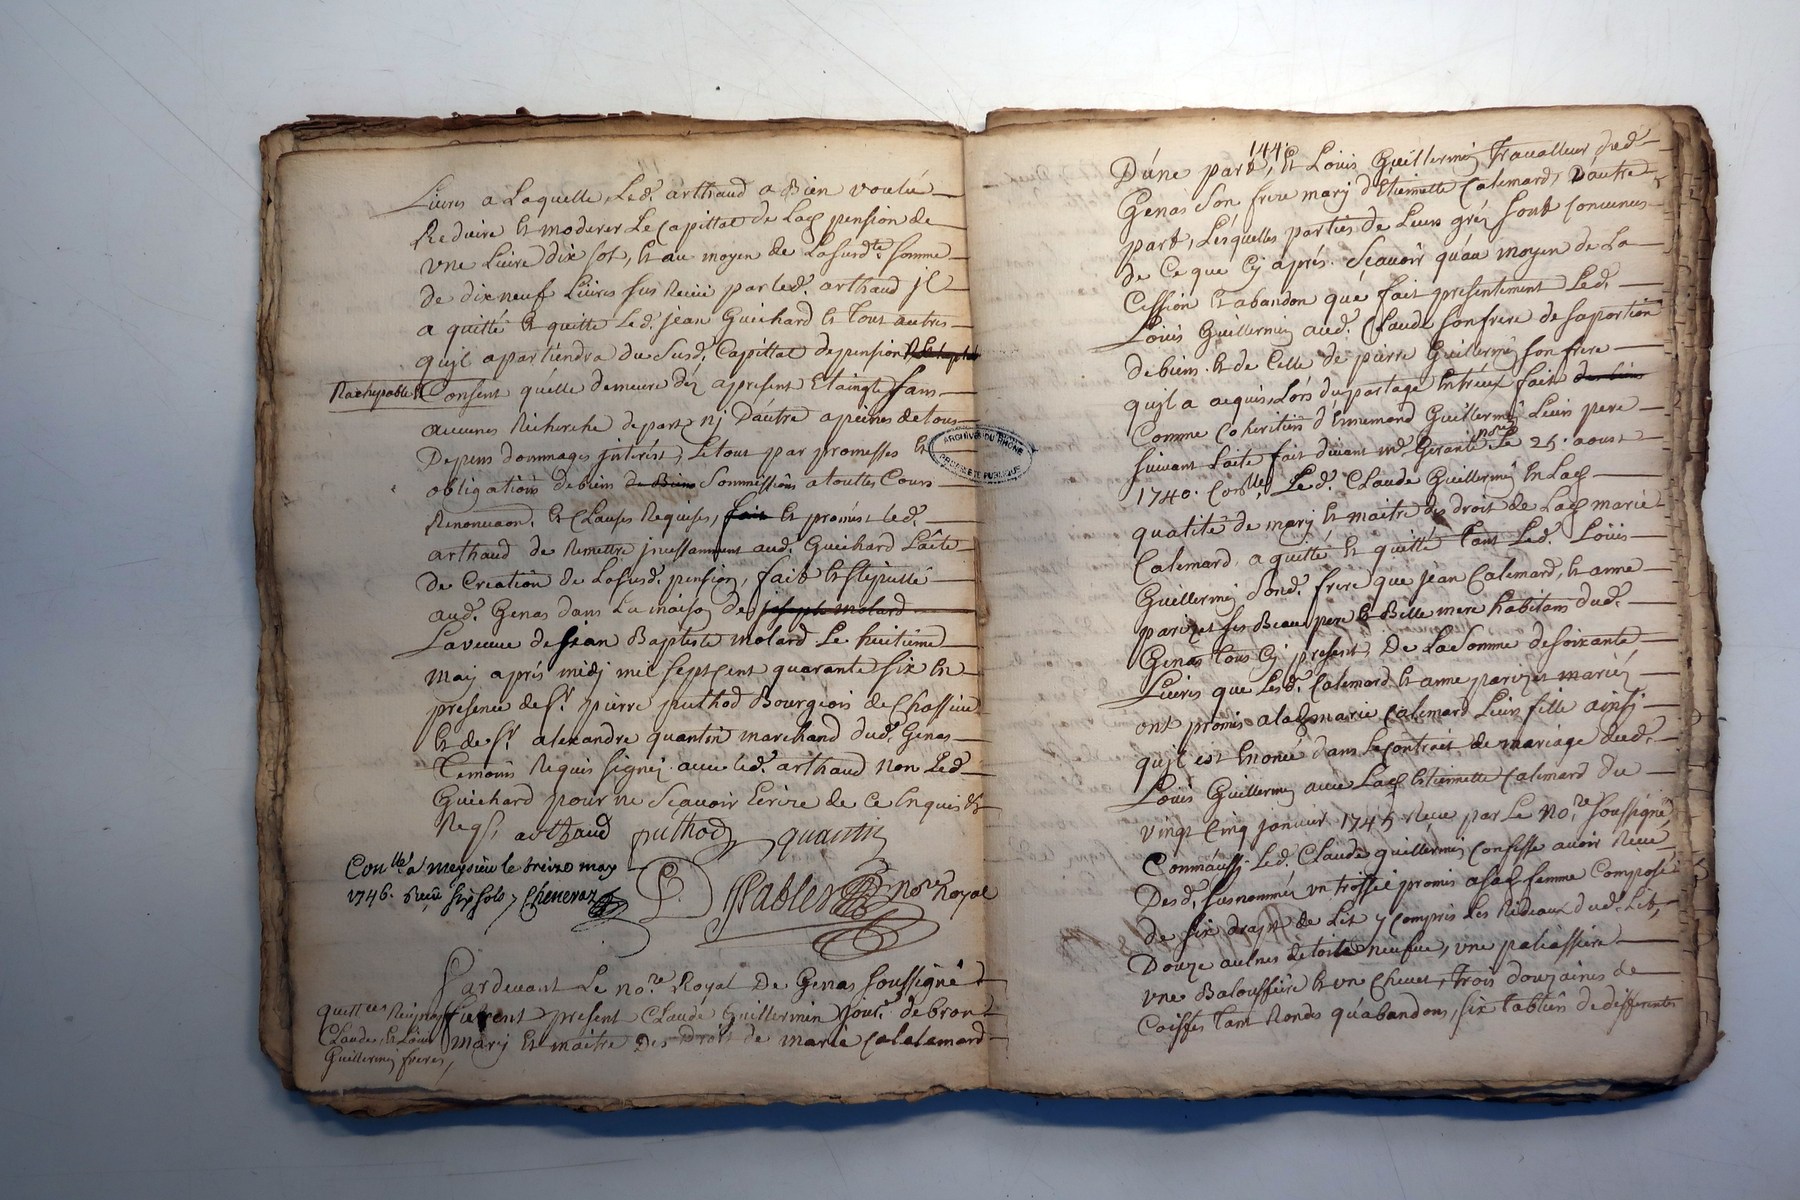 Livres a Laquelle Led. arthaud a Bien voulu
Reduire et moderer Le Capittal de Lad pension de
vne Livre dix sol, et au moyen de Lasusd.te somme
de dix neuf Livres sus Receüe par led. arthaud jl
a quitté et quitte Led. jean Guichard et tous autres
qujl apartiendra du Susd. Capittal de pension
Rachepable et
Consent quélle demeure déz apresent Etaingte sans
aucunes Recherche de part nj Dáutre a peines de tous
Depens dommages jnterést, Le tout par promesses et
obligations de biens de Biens Sommissions a touttes Cours
Renonciaõn. et Clauses Requises, fait et promést led.
arthaud de Remettre jncessamment aud. Guichard Lácte
de Creation de Lasusd. pension, fait et stipullé
aud. Genas dans La maison de joseph molard
La veuve de jean Baptiste molard Le huitième
may aprés midj mil sept cent quarante six en
présence de S.r pierre puthod Bourgeois de Chassieu
et de S.r alexandre quantin marchand dud. Genas
Temoins Requis signéz avec led. arthaud non Led
Guichard pour ne Scavoir Ecrire de ce Enquis et
Reqs, arthaud puthod quantin
Con.llé a Meysieu le treize may
1746. Reçu six sols Cheneraz
Sablers no.re Royal
Pardevant Le no.re Royal De Genas soussigné
quittces Reciproq
Claude et Loüis
Guillermin freres
furent présent Claude Guillermin jour. de bron
marÿ et maitre Des Droit de marie Calalamard
144
D'úne part, et Loüis Guillermin Travailleur dud
Genas Son frere marÿ d'Etiennette Calemard, Dáutre
part, Lesquelles parties de Leurs gréz sont convenus
de Ce que Cÿ aprés. Sçavoir qu'au moyen de La
Cession et abandon qué fait présentement Led.
Loüis Guillermin aud. Claude son frere de sa portion
de biens et de Celle de pierre Guillermin son frere
qujl a acquis, Lórs du partage Entréux fait des biens
Comme Coheritiers d'Ennemond Guillermin Leur pere
suivant Lácte fait divant m.e Gerante no.re Le 25. aoust
1740. Con.llé, Led. Claude Guillermin En Lad
qualité de marj et maitre des droit de Lad marie
Calemard, a quitté et quitté Tant Led. Loüis
Guillermin Sond. frere que jean Calemard, et anne
parizet ses Beau pere et Belle mere habitans dud.
Genas Tous Cÿ présent, De La Somme de soixante
Livres que Lesd. Calemard et anne parizet mariéz
ont promis a lad marie Calemard Leur fille ainsi
qujl est Enoncé dans le contrait de mariage dud.
Loüis Guillermin avec Lad Etiennette Calemard du
vingt Cinq janvier 1745 Reçue par Le No.re soussigné
Comme aussj Led. Claude guillermin Confesse avoir Reçue
Desd. susnommés vn trossel promis a sad femme Composé
de six draps de Lit y compris Les Rideaux dud. Lit,
Douze aulnes de toile neufue, vne paliassiere
vne Balouffiere et vn Chevet, Trois douzaines de
Coiffes tant Rondes qu'abandons, six tabliers de differentes
ARCHIVES DU RHÔNE
PROPRIÉTÉ PUBLIQUE